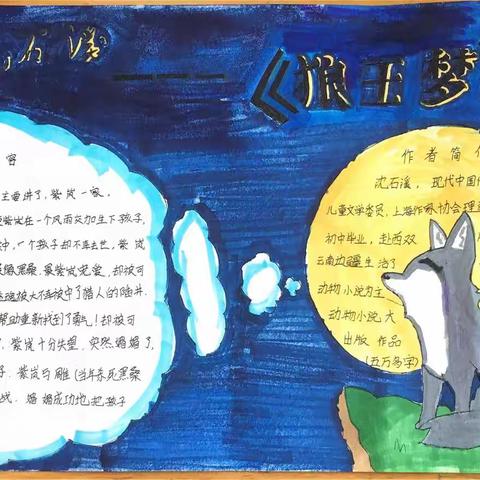 石溪《狼王梦
容
主要讲了,紫岚一家,
紫岚在一个风雨交加生下孩子,
中,一个孩子却不幸去世,紫岚
黑桑,最紫岚宠爱,却被可
大不幸被中了猎人的陷井.
帮助重新找到了勇气!却被可
紫岚十分失望.突然媚媚了,
子.紫岚与雕(当年杀死黑桑
战.媚媚成功地把孩子
作者简
沈石溪,现代中国
儿童文学委员,上海作家协会理
初中毕业,赴西双
云南边疆生活了
动物小说为主
动物小说大
出版 作品
(五万多字)